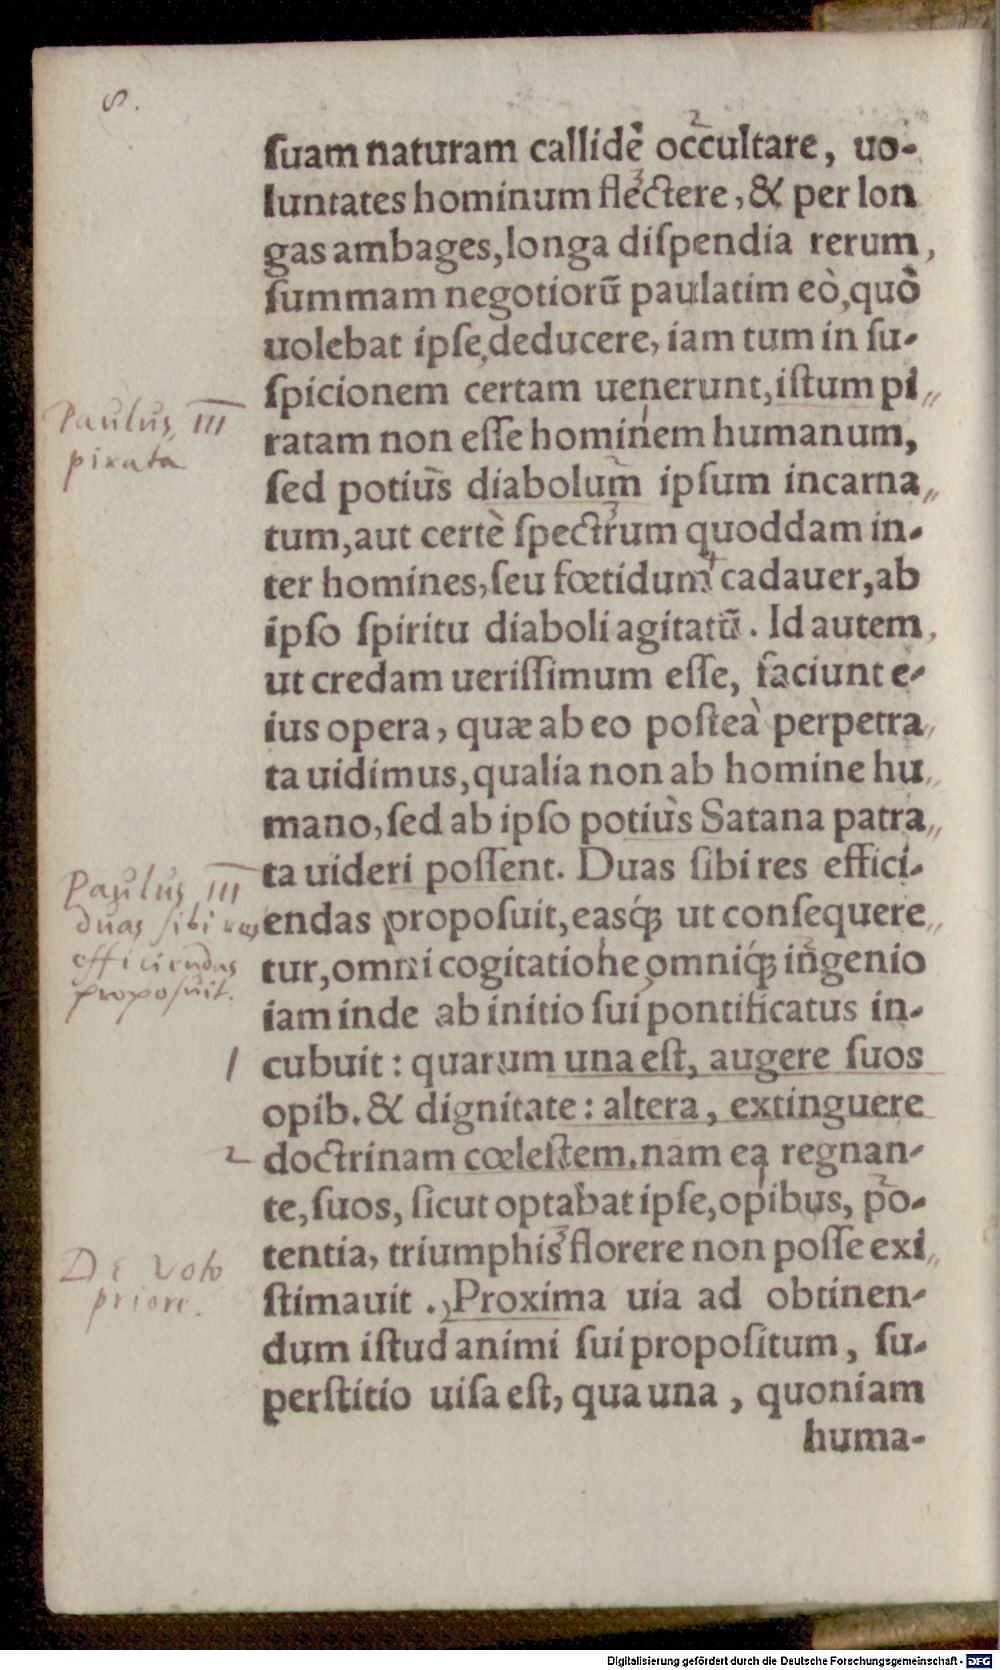 8.
suam naturam callidè occultare, uo-
luntates hominum flectere, & per lon
gas ambages, longa dispendia rerum,
summam negotiorũ paulatim eò, quò
uolebat ipse, deducere, iam tum in su-
spicionem certam uenerunt, istum pi
Paulus III
ratam non esse hominem humanum,
pirata
sed potiùs diabolum ipsum incarna
tum, aut certè spectrum quoddam in-
ter homines, seu fœtidum cadauer, ab
ipso spiritu diaboli agitatũ. Id autem,
ut credam uerissimum esse, faciunt e-
ius opera, quæ ab eo posteà perpetra
ta uidimus, qualia non ab homine hu
mano, sed ab ipso potiùs Satana patra
ta uideri possent. Duas sibi res effici-
Paulus III
endas proposuit, easq́; ut consequere
duas sibi res
tur, omni cogitatione omniq́; ingenio
efficiendas
proposuit.
iam inde ab initio sui pontificatus in-
1
cubuit: quarum una est, augere suos
opib. & dignitate: altera, extinguere
2
doctrinam cœlestem. nam ea regnan-
te, suos, sicut optabat ipse, opibus, po-
tentia, triumphis florere non posse exi
De voto
stimauit. Proxima uia ad obtinen-
priori.
dum istud animi sui propositum, su-
perstitio uisa est, qua una, quoniam
huma-
Digitalisierung gefördert durch die Deutsche Forschungsgemeinschaft - DFG